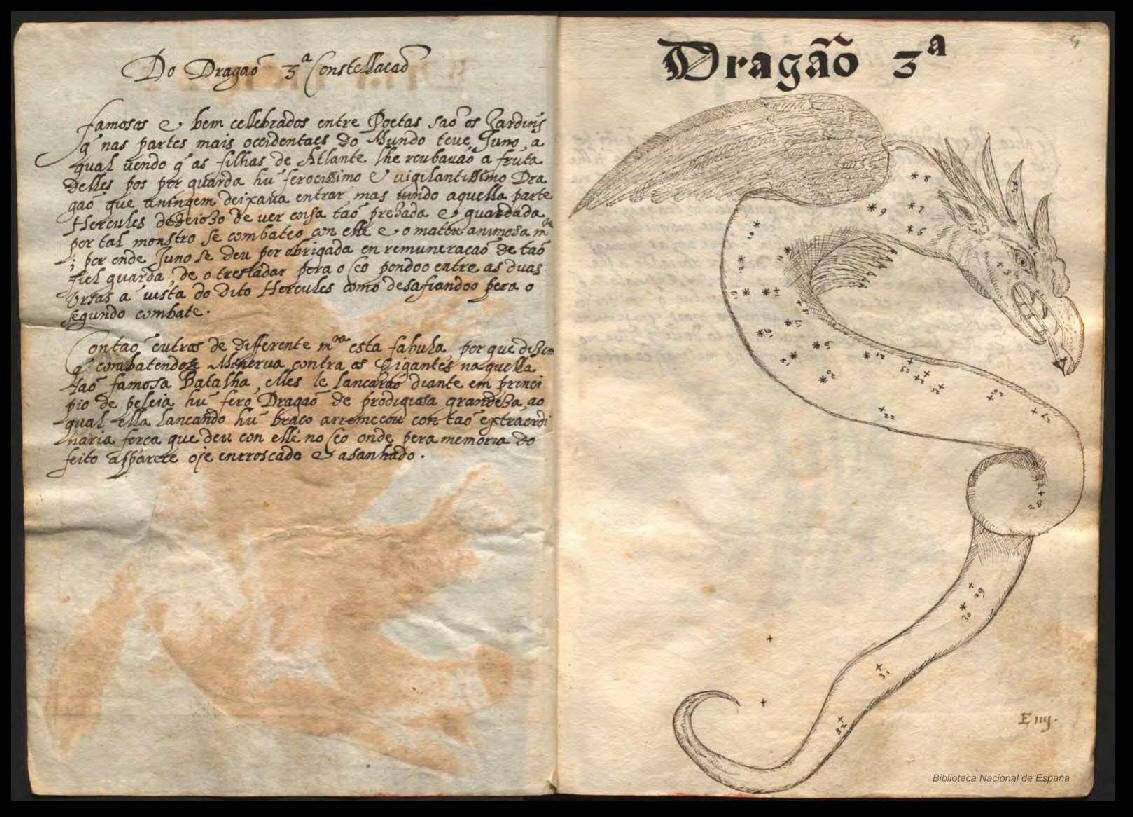 Do Dragaõ 3ª Constellacaõ
famosos e bem cellebrados entre Poetas saõ os Jardins
q̃ nas partes mais occidentaes do Mundo teve Juno, a
qual vendo q̃ as filhas de Atlante lhe roubauaõ a fruta
delles pos por guarda hũ ferocissimo e vigilantissimo Dra
gaõ que a ningem deixaua entrar mas vindo aquella parte
Hercules de ver coisa taõ prezada e guardada
por tal monstro se combateo con elle e o matou animosa mte
; por onde Juno se deu por obrigada en remuneracaõ de taõ
fiel guarda de o tresladar pera o Ceo pondoo entre as duas
Ursas a vista do dito Hercules como desafiandoo pera o
segundo combate.
Contaõ outros de diferente mra esta fabula por que dizem
q̃ combatendose Minerva contra os Gigantes naquella
taõ famosa Batalha, elles le lancaraõ diante em princi
pio de peleia hũ fero Dragaõ de prodigiosa grandeza ao
qual ella lancando hũ braco arremecou con taõ extraordi
naria forca que deu con elle no Ceo onde pera memoria do
feito apparece oje enrroscado e asanhado.
Dragaõ 3ª
8
7
9
6
29
30
31
32
E iiij.
Biblioteca Nacional de España